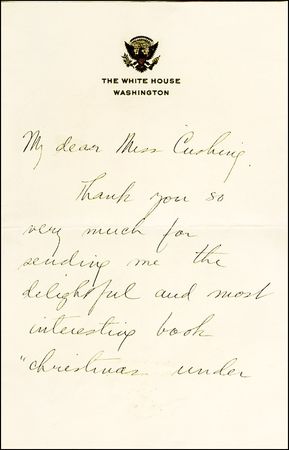 THE WHITE HOUSE
WASHINGTON
My dear Miss Cushing.
Thank you so
very much for
sending me the
delightful and most
interesting book
"Christmas under